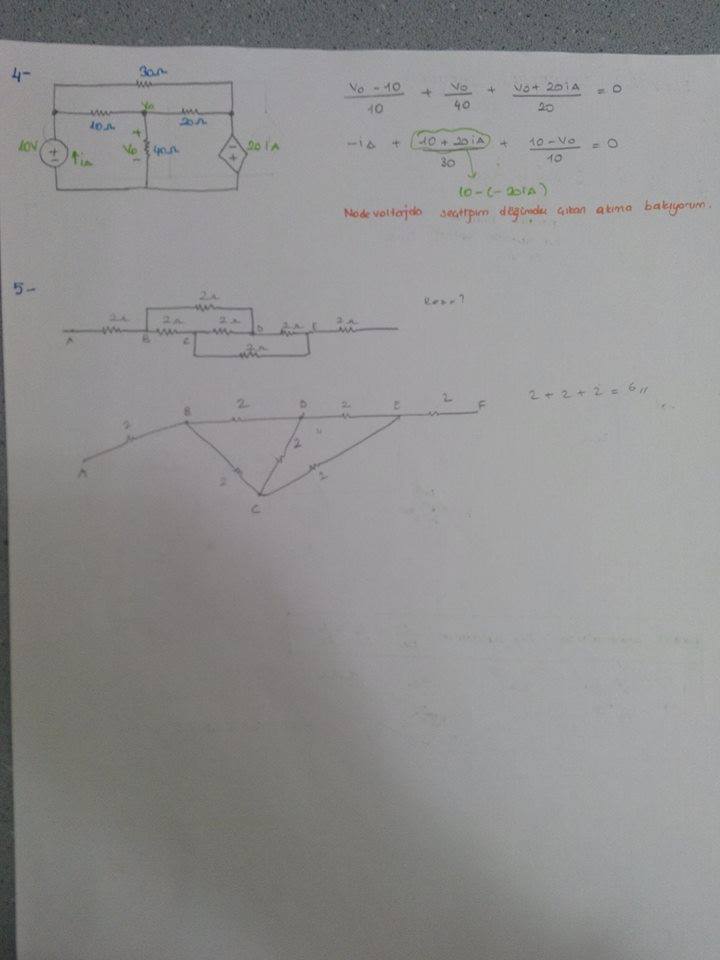 4-
30Ω
10Ω
Vo
20Ω
10V
iΔ
+
Vo
-
40Ω
20 iΔ
Vo - 10 / 10 + Vo / 40 + Vo + 20iΔ / 20 = 0
-iΔ + 10 + 20iΔ / 30 + 10 - Vo / 10 = 0
10-(-20iΔ)
Node voltajda seçtiğim düğümden çıkan akıma bakıyorum.
5-
2Ω
2Ω 2Ω 2Ω 2Ω 2Ω
A B C D E
2Ω
B 2 D 2 E 2 F
2
A
2 2 2
C
2 + 2 + 2 = 6//